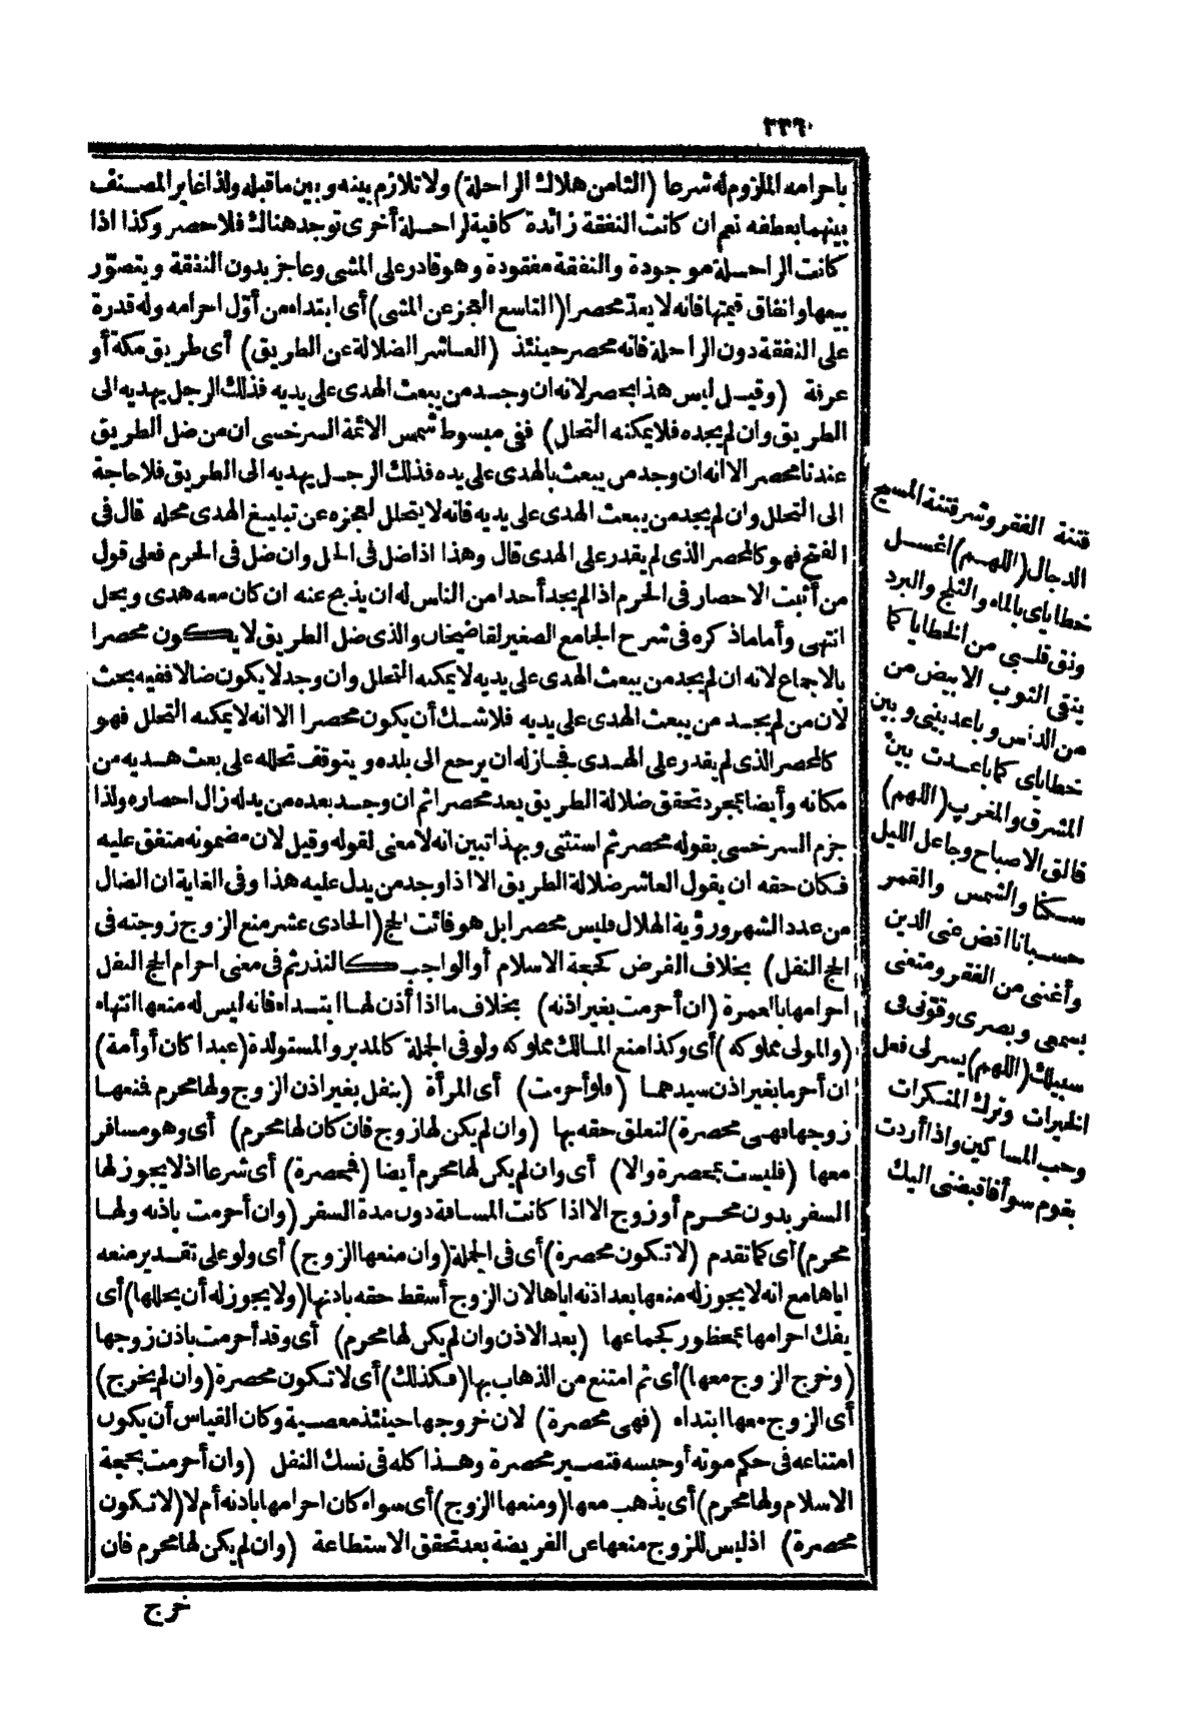 ٢٣٦
باحرامه الملزوم له شرعا (الثامن هلاك الراحلة) ولا تلازم بينه وبين ما قبله ولذا غاير المصنف
بينهما بعطفه نعم ان كانت النفقة زائدة كافية لراحلة أخرى توجد هنالك فلا حصر وكذا اذا
كانت الراحلة موجودة والنفقة مفقودة وهو قادر على المشى وعاجز بدون النفقة ويتصوّر
بيعها وانفاق قيمتها فانه لا يعدّ محصرا (التاسع العجز عن المشى) أى ابتداء من أوّل احرامه وله قدرة
على النفقة دون الراحلة فانه محصر حينئذ (العاشر الضلالة عن الطريق) أى طريق مكة أو
عرفة (وقيل ليس هذا بحصر لانه ان وجد من يبعث الهدى على يديه فذلك الرجل يهديه الى
الطريق وان لم يجده فلا يمكنه التحلل) ففى مبسوط شمس الائمة السرخسى ان من ضل الطريق
عندنا محصر الا انه ان وجد من يبعث بالهدى على يده فذلك الرجل يهديه الى الطريق فلا حاجة
الى التحلل وان لم يجد من يبعث الهدى على يديه فانه لا يتحلل لعجزه عن تبليغ الهدى محله قال فى
الفتح فهو كالمحصر الذى لم يقدر على الهدى قال وهذا اذا ضل فى الحل وان ضل فى الحرم فعلى قول
من أثبت الاحصار فى الحرم اذا لم يجد أحدا من الناس له ان يذبح عنه ان كان معه هدى ويحل
انتهى وأما ما ذكره فى شرح الجامع الصغير لقاضيخان والذى ضل الطريق لا يكون محصرا
بالاجماع لانه ان لم يجد من يبعث الهدى على يديه لا يمكنه التحلل وان وجد لا يكون ضالا ففيه بحث
لان من لم يجد من يبعث الهدى على يديه فلا شك أن يكون محصرا الا انه لا يمكنه التحلل فهو
كالمحصر الذى لم يقدر على الهدى فجاز له ان يرجع الى بلده ويتوقف تحلله على بعث هديه من
مكانه وأيضا بمجرد تحقق ضلالة الطريق يعد محصرا ثم ان وجد بعده من يدله زال احصاره ولذا
جزم السرخسى بقوله محصر ثم استثنى وبهذا تبين انه لا معنى لقوله وقيل لان مضمونه متفق عليه
فكان حقه ان يقول العاشر ضلالة الطريق الا اذا وجد من يدل عليه هذا وفى الغاية ان الضال
من عدد الشهور ورؤية الهلال فليس محصرا بل هو فائت الحج (الحادى عشر منع الزوج زوجته فى
الحج النفل) بخلاف الفرض كحجة الاسلام أو الواجب كالنذر ثم فى معنى احرام الحج النفل
احرامها بالعمرة (ان أحرمت بغير اذنه) بخلاف ما اذا أذن لها ابتداء فانه ليس له منعها انتهاء
(والمولى مملوكه) أى وكذا منع المالك مملوكه ولو فى الجملة كالمدبر والمستولدة (عبدا كان أو أمة)
ان أحرما بغير اذن سيدهما (فلو أحرمت) أى المرأة (بنفل بغير اذن الزوج ولها محرم فمنعها
زوجها فهى محصرة) لتعلق حقه بها (وان لم يكن لها زوج فان كان لها محرم) أى وهو مسافر
معها (فليست بمحصرة والا) أى وان لم يكن لها محرم أيضا (فمحصرة) أى شرعا اذ لا يجوز لها
السفر بدون محرم أو زوج الا اذا كانت المسافة دون مدة السفر (وان أحرمت باذنه ولها
محرم) أى كما تقدم (لا تكون محصرة) أى فى الجملة (وان منعها الزوج) أى ولو على تقدير منعه
اياها مع انه لا يجوز له منعها بعد اذنه اياها لان الزوج أسقط حقه باذنها (ولا يجوز له أن يحللها) أى
يفك احرامها بمحظور كجماعها (بعد الاذن وان لم يكن لها محرم) أى وقد أحرمت باذن زوجها
(وخرج الزوج معها) أى ثم امتنع من الذهاب بها (فكذلك) أى لا تكون محصرة (وان لم يخرج)
أى الزوج معها ابتداء (فهى محصرة) لان خروجها حينئذ معصية وكان القياس أن يكون
امتناعه فى حكم موته أو حبسه فتصير محصرة وهذا كله فى نسك النفل (وان أحرمت بحجة
الاسلام ولها محرم) أى يذهب معها (ومنعها الزوج) أى سواء كان احرامها باذنه أم لا (لا تكون
محصرة) اذ ليس للزوج منعها عن الفريضة بعد تحقق الاستطاعة (وان لم يكن لها محرم فان
خرج
فتنة الفقر وشر فتنة المسيح
الدجال (اللهم) اغسل
خطاياى بالماء والثلج والبرد
ونق قلبى من الخطايا كما
ينقى الثوب الابيض من
من الدنس وباعد بينى وبين
خطاياى كما باعدت بين
المشرق والمغرب (اللهم)
فالق الاصباح وجاعل الليل
سكنا والشمس والقمر
حسبانا اقض عنى الدين
وأغننى من الفقر ومتعنى
بسمعى وبصرى وقوّتى فى
سبيلك (اللهم) يسر لى فعل
الخيرات وترك المنكرات
وحب المساكين واذا أردت
بقوم سوأ فاقبضنى اليك